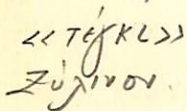 «τέγκι»
Ξύλινον.